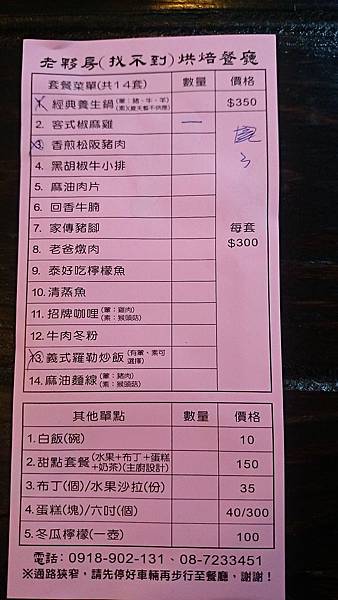 老夥房(找不到)烘焙餐廳
套餐菜單(共14套) 數量 價格
1. 經典養生鍋(葷：豬、牛、羊) $350
2. 客式椒麻雞 一
3. 香煎松阪豬肉
4. 黑胡椒牛小排
5. 麻油肉片
6. 回香牛腩
7. 家傳豬腳 每套
$300
8. 老爸燉肉
9. 泰好吃檸檬魚
10.清蒸魚
11.招牌咖哩(葷：雞肉)
(素：猴頭菇)
12.牛肉冬粉
13.義式羅勒炒飯(有葷、素可
選擇)
14.麻油麵線(葷：豬肉)
(素：猴頭菇)
其他單點 數量 價格
1.白飯(碗) 10
2.甜點套餐(水果+布丁+蛋糕
+奶茶)(主廚設計) 150
3.布丁(個)/水果沙拉(份) 35
4.蛋糕(塊)/六吋(個) 40/300
5.冬瓜檸檬(一壺) 100
電話：0918-902-131、08-7233451
※通路狹窄，請先停好車輛再步行至餐廳，謝謝！